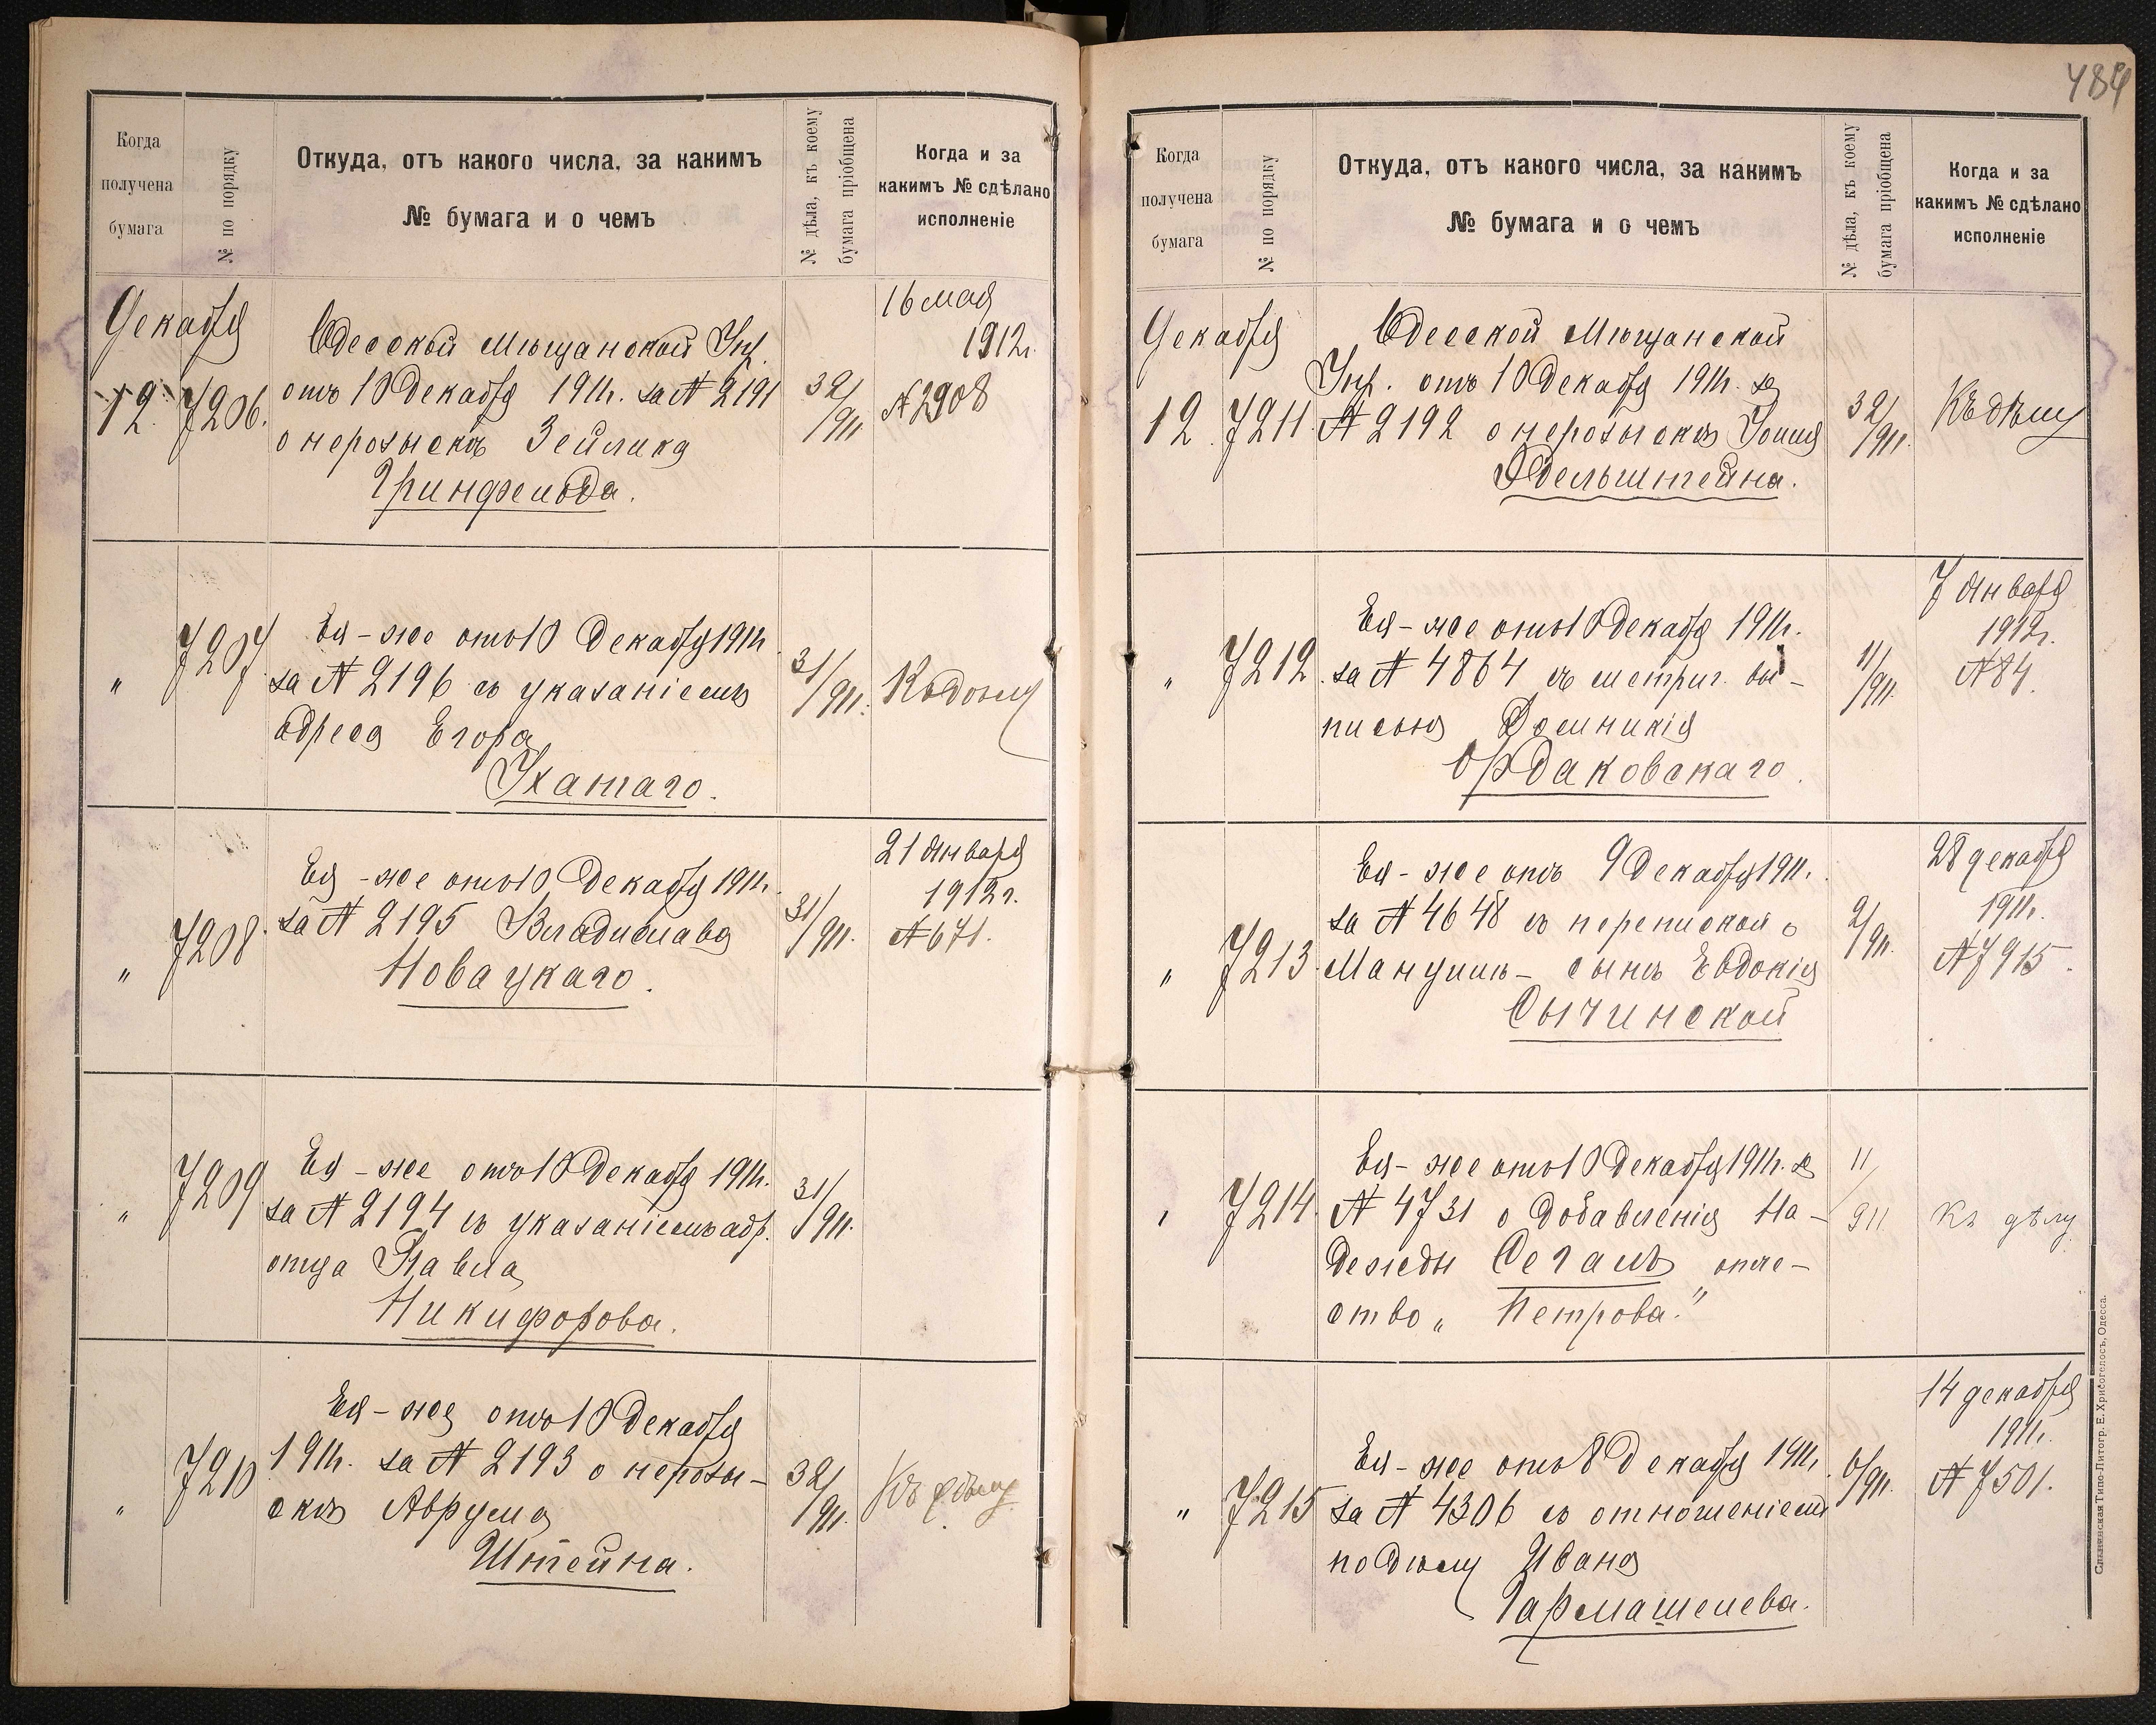 484
Когда
получена
бумага
№ по порядку
Откуда, отъ какого числа, за какимъ
№ бумага и о чемъ
№ дѣла, къ коему
бумага пріобщена
Когда и за
какимъ № сдѣлано
исполненіе
Декабря
12. 7206.
Одесской Мѣщанской Упр.
отъ 10 Декабря 1911г. за № 2191
о нерозыскѣ Зейлика
Гринфельда.
32/911
16 мая
1912г.
№ 2908
" 7207.
Ея-же отъ 10 Декабря 1911г.
за № 2196 съ указаніемъ
адреса Егора
31/911.
Къ дѣлу
" 7208.
Ея-же отъ 10 Декабря 1911г.
за № 2195 Владислава
Новацкаго.
31/911.
21 Января
1912г.
№ 671.
" 7209
Ея-же отъ 10 Декабря 1911г.
за № 2194 съ указаніемъ адр.
отца Павла
Никифорова.
31/911.
" 7210
Ея-же отъ 10 Декабря
1911г. за № 2193 о нерозы-
скѣ Аврума
Штейна.
32/911.
Къ дѣлу
Когда
получена
бумага
№ по порядку
Откуда, отъ какого числа, за какимъ
№ бумага и о чемъ
№ дѣла, къ коему
бумага пріобщена
Когда и за
какимъ № сдѣлано
исполненіе
Декабря
12. 7211.
Одесской Мѣщанской
Упр. отъ 10 Декабря 1911г. за
№ 2192 о нерозыскѣ
Эдельштейна.
32/911.
Къ дѣлу
" 7212.
Ея-же отъ 10 Декабря 1911г.
за № 4864 съ метрич. вы-
писью Доминикія
Ордаковскаго.
11/911.
7 Января
1912г.
№ 84.
" 7213
Ея-же отъ 9 Декабря 1911г.
за № 4648 съ перепиской о
Мануилѣ- сынѣ Евдокіи
Сычинской
2/911.
28 декабря
1911г.
№ 7915.
" 7214.
Ея-же отъ 10 Декабря 1911г. за
№ 4731 о добавленіи На-
дежды Сегаль отче-
ство „Петрова."
11/911
Къ дѣлу
" 7215
Ея-же отъ 8 Декабря 1911г.
за № 4306 съ отношеніемъ
по дѣлу Ивана
Гармашелева.
6/911.
14 декабря
1911г.
№ 7501.
Славянская Типо-Литогр. Е. Хрисогелосъ, Одесса.